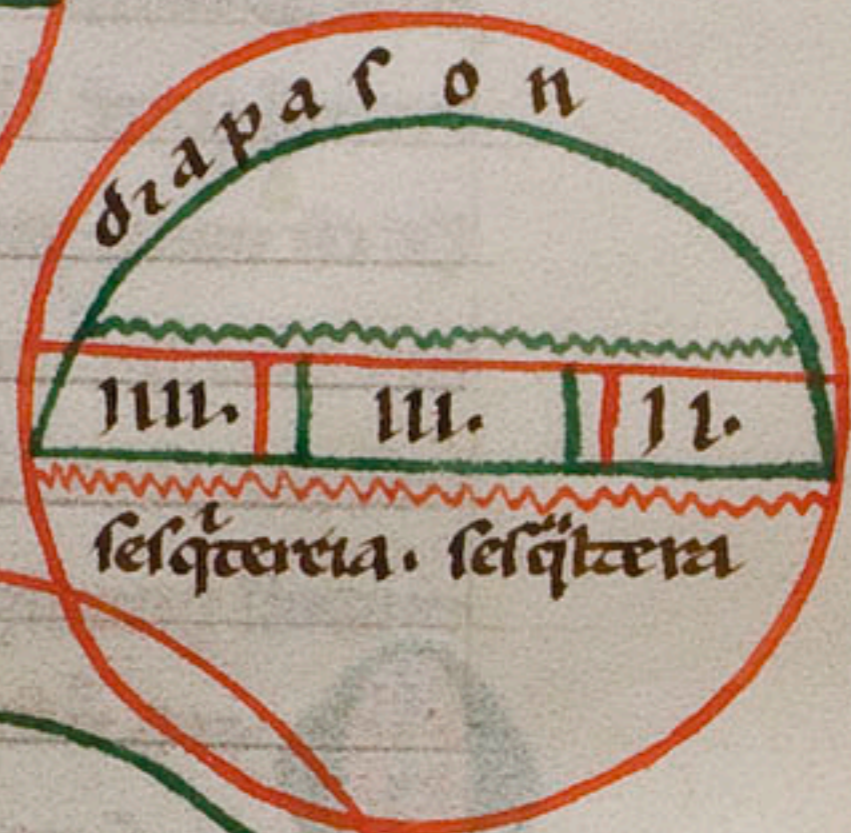 diapason
IIII. III. II.
sesqͥtercia. sesqͣltera